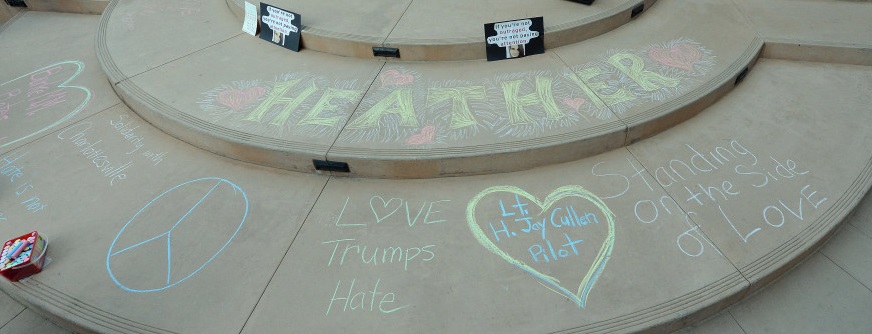 If you're not
outraged,
you're not paying
attention
If you're not
outraged,
you're not paying
attention
HEATHER
Solidarity with
Charlottesville
Hate is not
LOVE
Trumps
Hate
Lt
H. Joy Cullen
Pilot
Standing
on the Side
of LOVE